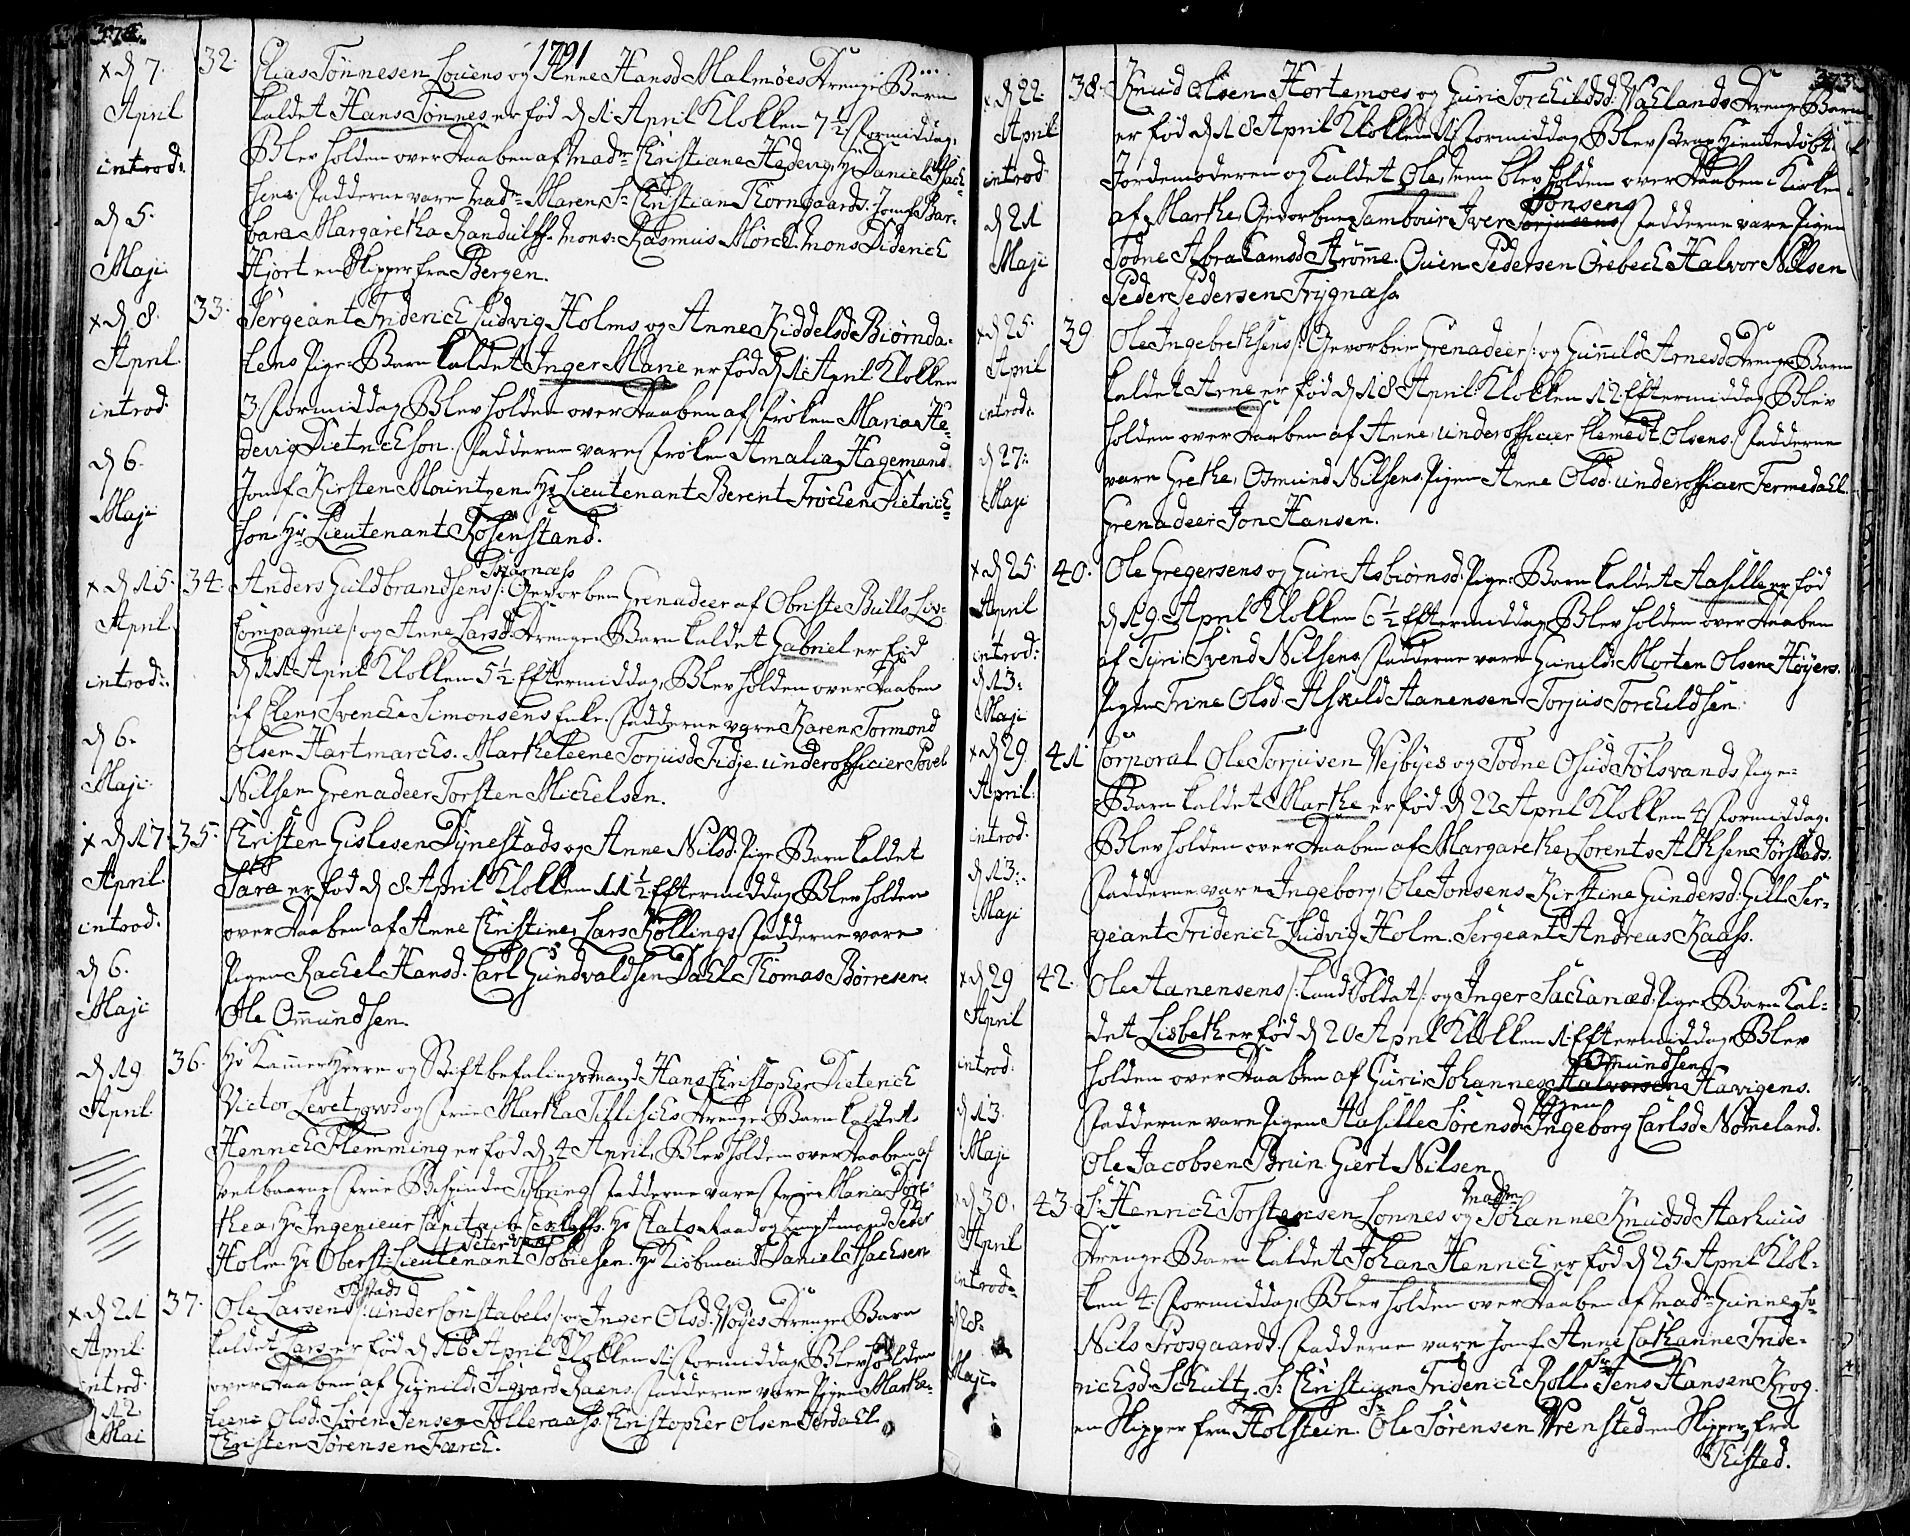 372.
1791
x d 7. April introd: d 5. Maji
32. Elias Tønnesen Louens og Anne Hansd Malmöes Drenge Barn
kaldet Hans Tønnes er fød d 1 April Klokken 7½ Formiddag,
Blev holden over Daaben af Madme Christiane Hedevig, Hr Daniel Isach-
sens. Fadderne vare Madme Maren, Sr Christian Thorngaards. Jomf Bar-
bara Margaretha Randulff. Mons: Rasmus Mörch. Mons Diderich
Hjort en Skipper fra Bergen.
x d 8. April introd: d 6. Maji
33. Sergeant Friderich Ludvig Holms og Anne Kiddelsd Biørnda-
lens Pige-Barn kaldet Inger Marie er fød d 1 April Klokken
3 Formiddag Blev holden over Daaben af Frøken Maria He-
devig Dietrichson. Fadderne vare Frøken Amalia Hagemand.
Jomf Kirsten Mountzen. Hr Lieutenant Berent Frochen Dietrich-
son. Hr Lieutenant Rosenstand.
x d 15. April introd: d 6. Maji
34. Anders Guldbrandsens /: Gevorben Grenadeer af Obriste Bulls Liv-
Compagnie/ og Anne Larsd. Drenge Barn kaldet Gabriel er fød
d 11 April Klokken 5½ Eftermiddag, Blev holden over Daaben
af Elen, Svencke Simonsens Enke. Fadderne vare Karen, Tormond
Olsen Hartmarcks. Martheleene Torjusd Fidje. underofficier Povel
Nilsen Grenadeer Torsten Michelsen.
x d 17. April. introd: d 6. Maji
35. Christen Gislesen Dynestads og Anne Nilsd. Pige Barn kaldet
Sara er fød d 8 April Klokken 11½ Eftermiddag Blev holden
over Daaben af Anne Christine, Lars Kollings Fadderne vare
Pigen Rachel Hansd. Carl Gundvaldsen Dahl. Thomas Børresen.
Ole Omundsen.
d 19 April
36. Hr KammerHerre og Stiftbefalingsmand Hans Christopher Dieterich
Victor Levetzows og Frue Martha Tillischs Drenge Barn kaldet
Henrich Flemming er fød d 4 April, Blev holden over Daaben af
velbaarne Frue Bispinde Tybring Fadderne vare Frue Maria Doro-
thea, Hr Ingenieur Capitain . Hr Etats-Raad og Amptmand Peder
Holm. Hr Oberst-Lieutenant Tobiesen. Hr Kiøbmand Daniel Isachsen
x d 21 April introd. d 12 Mai
37. Ole Larsens /: underConstabels/ og Inger Olsd. Vøyes Drenge Barn
kaldet Lars er fød d 16 April Klokken 1 Formiddag Blev holden
over Daaben af Guneild, Sigvard Raens. Fadderne vare Pigen Marthe-
leene Olsd. Søren Jensen Tolleraass. Christopher Olsen Jordahl
Christen Sørensen Færch.
373
x d 22. April introd d 21 Maji
38. Knud Olsen Hortemoes og Guri Torchildsd. Wahlands Drenge Barn
er fød d 18 April Klokken 11 Formiddag Blev strax Hiemmedøbt
Jordemoderen og kaldet Ole, men blev holden over Daaben i Kirken
Jonsens
af Marthe, Gevorben Tambour Iver Torjusens Fadderne vare Pigen
Todne Abrahamsd Strømme. Ouen Pedersen Orebech Halvor Nilsen
Peder Pedersen Trygnass
x d 25. April introd: d 27. Maji
39. Ole Ingebrethsens /: Gevorben Grenadeer/: og Gunnild Arnesd Drenge Barn
kaldet Arne er fød d 18 April Klokken 12 Eftermiddag Blev
holden over Daaben af Anne, underofficier Clemedt Olsens. Fadderne
vare Grethe, Osmund Nilsens. Pigen Anne Olsd. underofficier Fermedahl.
Grenadeer Jon Hansen.
x d 25. April introd: d 13: Maji
40. Ole Gregersens og Guri Asbiørnsd: Pige Barn kaldet Aasille er fød
d 19 April Klokken 6½ Eftermiddag, Blev holden over Daaben
af Syri, Svend Nilsens. Fadderne vare Guneild, Morten Olsen Høyers.
Pigen Trine Olsd. Askild Aanensen. Torjus Torchildsen.
x d 29 April: introd. d 13: Maji
41 Corporal Ole Torjusen Wejbyes og Todne Osuld Tølsvands Pige-
Barn kaldet Marthe er fød d 22 April Klokken 4 Formiddag.
Blev holden over Daaben af Margarethe, Lorents Alksen Jørstads.
Fadderne vare Ingeborg, Ole Jonsens. Kirstine Gundersd: Gill. Ser-
geant Friderich Ludvig Holm. Sergeant Andreas Kaass.
x d 29 April introd. d 13. Maji
42. Ole Aanensens /: Land Soldat/: og Inger Zachariæd, Pige Barn kal-
det Lisbeth er fød d 20 April Klokken 1 Eftermiddag Blev
Omundsen
holden over Daaben af Guri, Johannes Halvorsens Haavigens.
Pigen
Fadderne vare Pigen Aasille Sørensd Ingeborg Carlsd Nomeland.
Ole Jacobsen Bruun. Giert Nilsen
d 30. April introd: d 28. Maji
43. Sr Henrich Torstensen Lonnes og Madm Johanne Knudsd Aarhuus
Drenge Barn kaldet Johan Henrich er fød d 25 April Klok-
ken 4 Formiddag Blev holden over Daaben af Madme Gunne, Sr
Nils Frosgaard. Fadderne vare Jomf Anne Cathanne Fride-
richsd Schultz. Sr Christian Friderich Roll. Sr Jens Hansen Krog
en Skipper fra Holstein. Sr Ole Sørensen Wrensted en Skipper fra
Thisted.